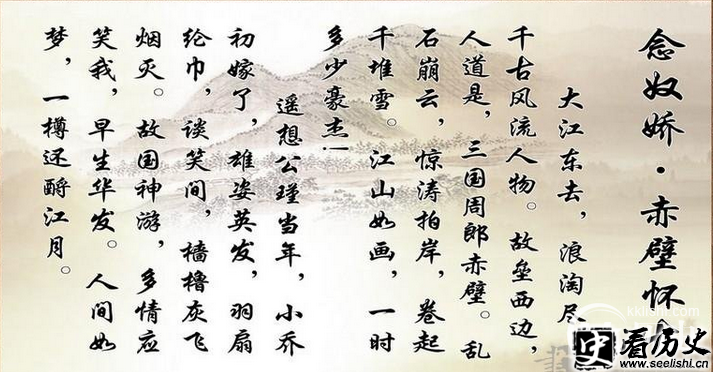 念奴娇·赤壁怀
大江东去，浪淘尽
千古风流人物。故垒西边，
人道是，三国周郎赤壁。乱
石崩云，惊涛拍岸，卷起
千堆雪。江山如画，一时
多少豪杰！
遥想公瑾当年，小乔
初嫁了，雄姿英发，羽扇
纶巾，谈笑间，樯橹灰飞
烟灭。故国神游，多情应
笑我，早生华发。人间如
梦，一樽还酹江月。
kklishi.com
史
看历史
www.seelishi.cn